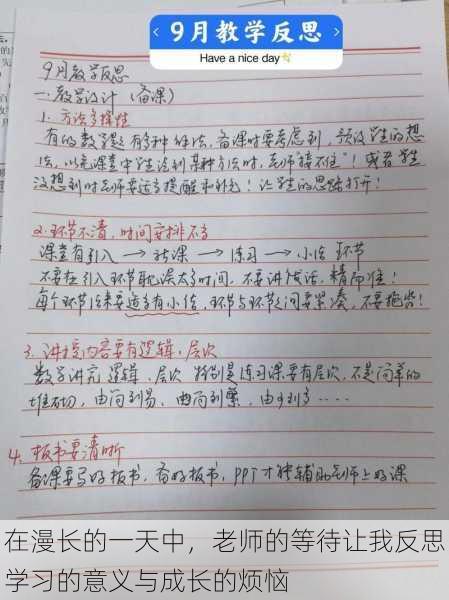 9月教学反思
Have a nice day
9月教学反思
一.教学设计(备课)
1. 方法多样性
有的数学题有多种解法,备课时要考虑到,预设学生的想
法,以免课堂中学生说到某种方法时,老师"接不住"!或者学生
没想到时老师要适当提醒和补充!让学生的思路打开!
2.环节不清,时间安排不当
课堂有引入→新课→练习→小结 环节
不要在引入环节耽误太多时间,不要讲废话,精而准!
每个环节结束要适当有小结,环节与环节之间要紧凑,不要拖沓!
3.讲授内容要有逻辑、层次
数学讲究逻辑、层次 特别是练习课要有层次,不是简单的
堆砌,由简到易、由简到繁,由少到多……
4.板书要清晰
备课要写好板书,有好板书,PPT才能辅助老师上好课
在漫长的一天中,老师的等待让我反思
学习的意义与成长的烦恼